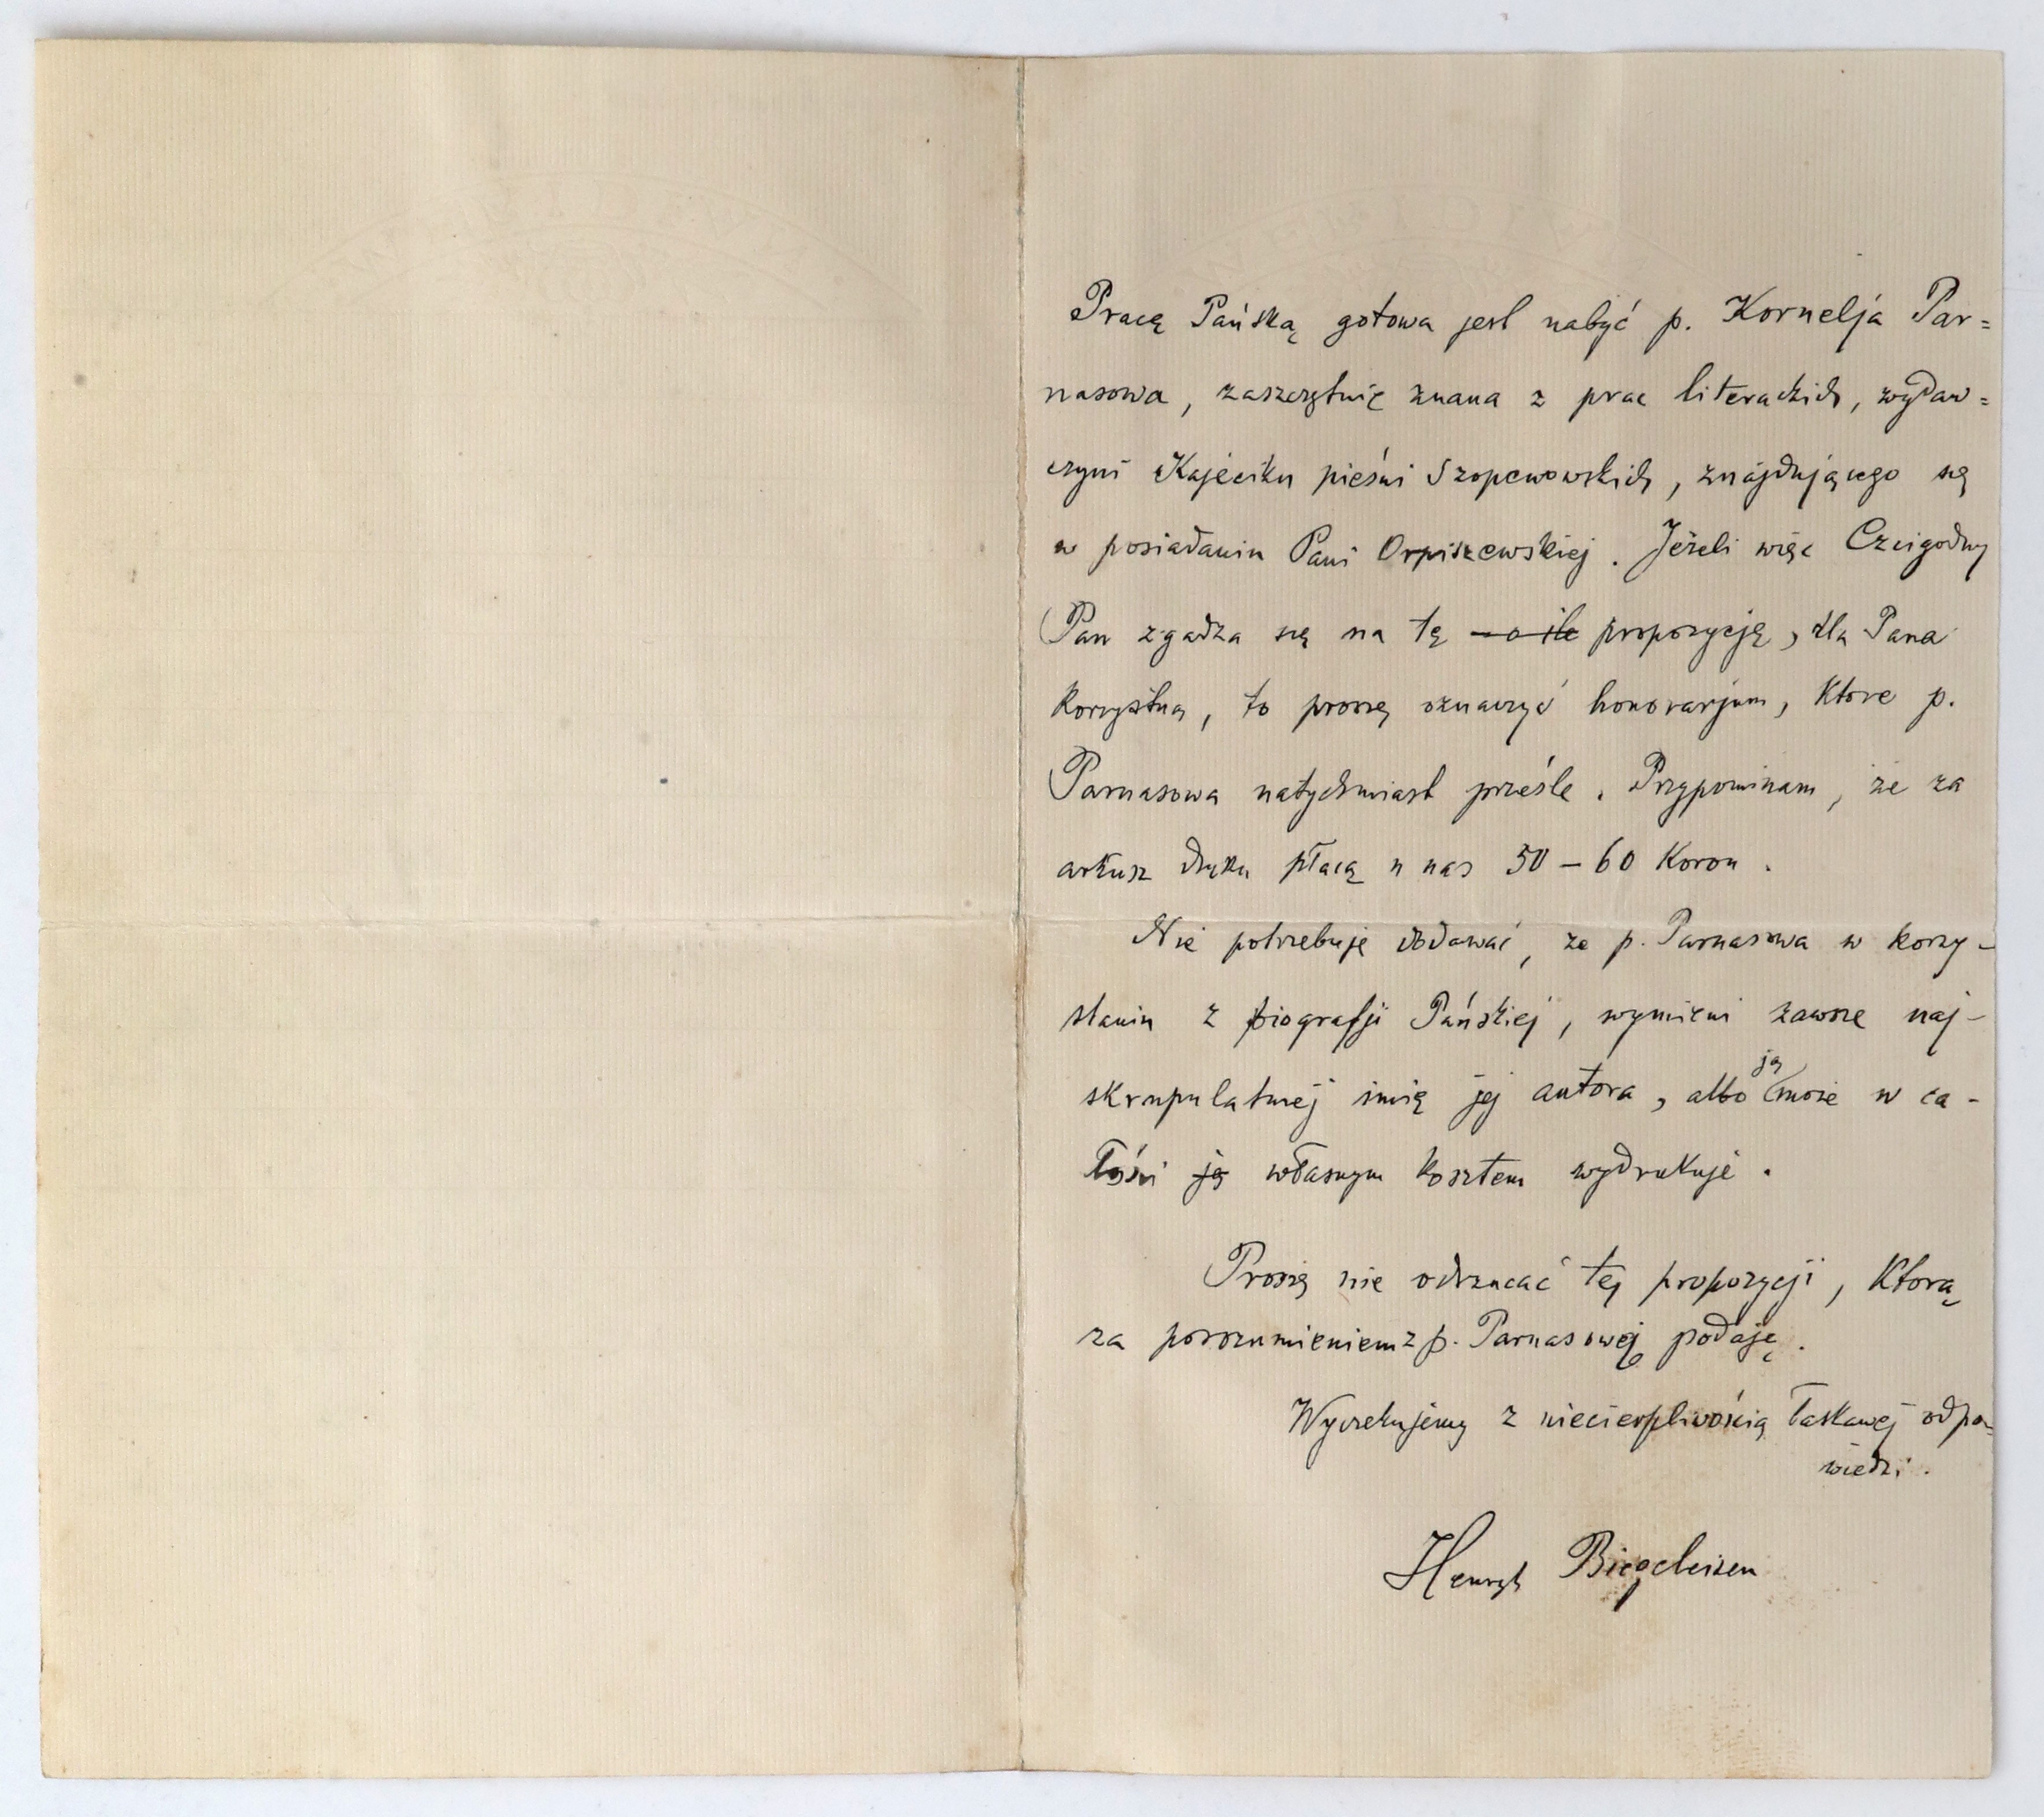 Pracę Pańską gotowa jest nabyć p. Kornelja Par=
nasowa, zaszczytnie znana z prac literackich, wydaw=
czyni Kajeciku pieśni Szopenowskich, znajdującego się
w posiadaniu Pani Orpiszewskiej. Jeżeli więc Czcigodny
Pan zgadza się na tę o ile propozycję, dla Pana
korzystną, to proszę oznaczyć honorarjum, które p.
Parnasowa natychmiast prześle. Przypominam, że za
arkusz druku płacą u nas 50 – 60 Koron.
Nie potrzebuję dodawać, że p. Parnasowa w korzy-
staniu z biografji Pańskiej, wymieni zawsze naj-
skrupulatniej imię jej autora, albo ją może w ca-
łości ją własnym kosztem wydrukuje.
Proszę nie odrzucać tej propozycji, którą
za porozumieniem z p. Parnasowej podaję.
Wyczekujemy z niecierpliwością łaskawej odpo=
wiedzi.
Henryk Biegeleisen